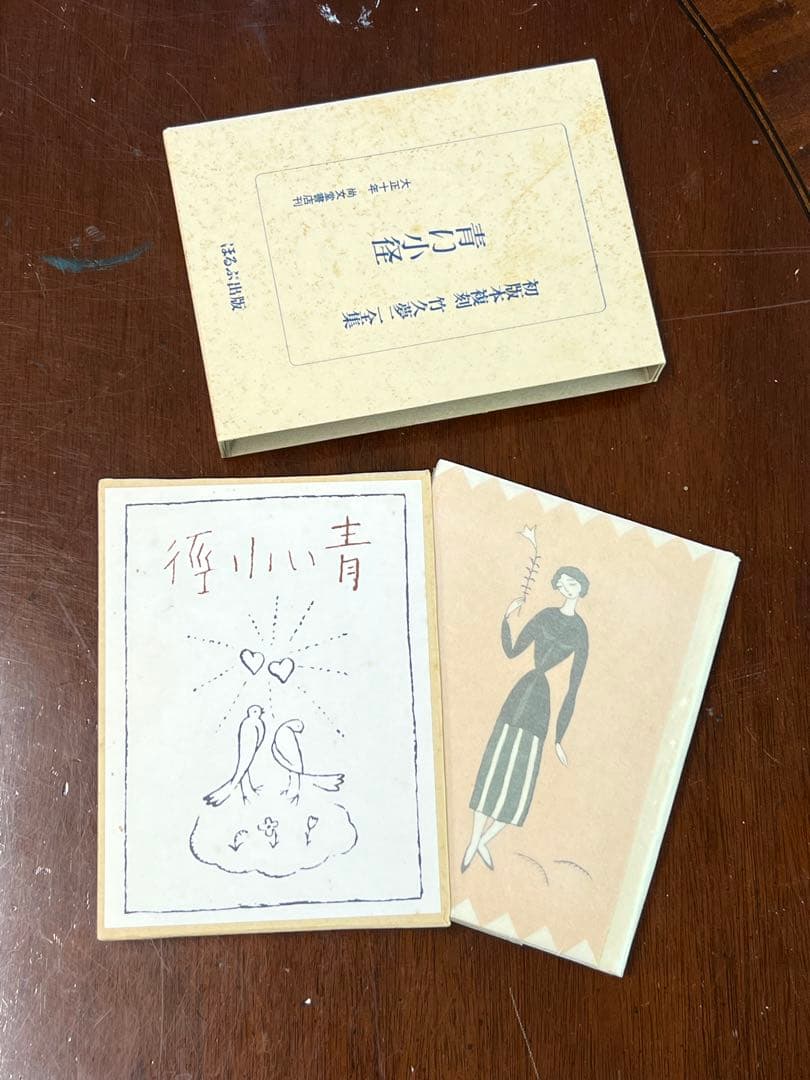 初版本複刻 竹久夢二全集
青い小径
大正十年 尚文堂書店刊
ほるぷ出版
青い小徑